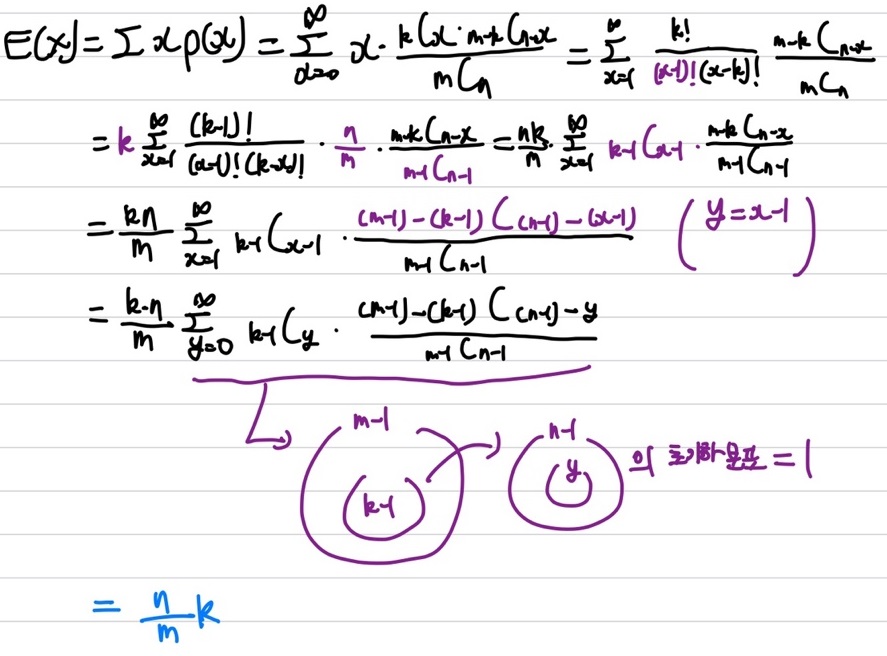 E(x) = Σ x p(x) = Σ_{x=0}^{∞} x · \frac{{}_{k}C_{x} · {}_{m-k}C_{n-x}}{{}_{m}C_{n}} = Σ_{x=1}^{∞} \frac{k!}{(x-1)!(x-k)!} \frac{{}_{m-k}C_{n-x}}{{}_{m}C_{n}}
= k Σ_{x=1}^{∞} \frac{(k-1)!}{(x-1)!(k-x)!} · \frac{n}{m} · \frac{{}_{m-k}C_{n-x}}{{}_{m-1}C_{n-1}} = \frac{nk}{m} · Σ_{x=1}^{∞} {}_{k-1}C_{x-1} · \frac{{}_{m-k}C_{n-x}}{{}_{m-1}C_{n-1}}
= \frac{kn}{m} Σ_{x=1}^{∞} {}_{k-1}C_{x-1} · \frac{{}_{(m-1)-(k-1)}C_{(n-1)-(x-1)}}{{}_{m-1}C_{n-1}} ( y = x-1 )
= \frac{k·n}{m} · Σ_{y=0}^{∞} {}_{k-1}C_{y} · \frac{{}_{(m-1)-(k-1)}C_{(n-1)-y}}{{}_{m-1}C_{n-1}}
m-1
n-1
k-1
y
의 초기하분포 = 1
= \frac{n}{m} k